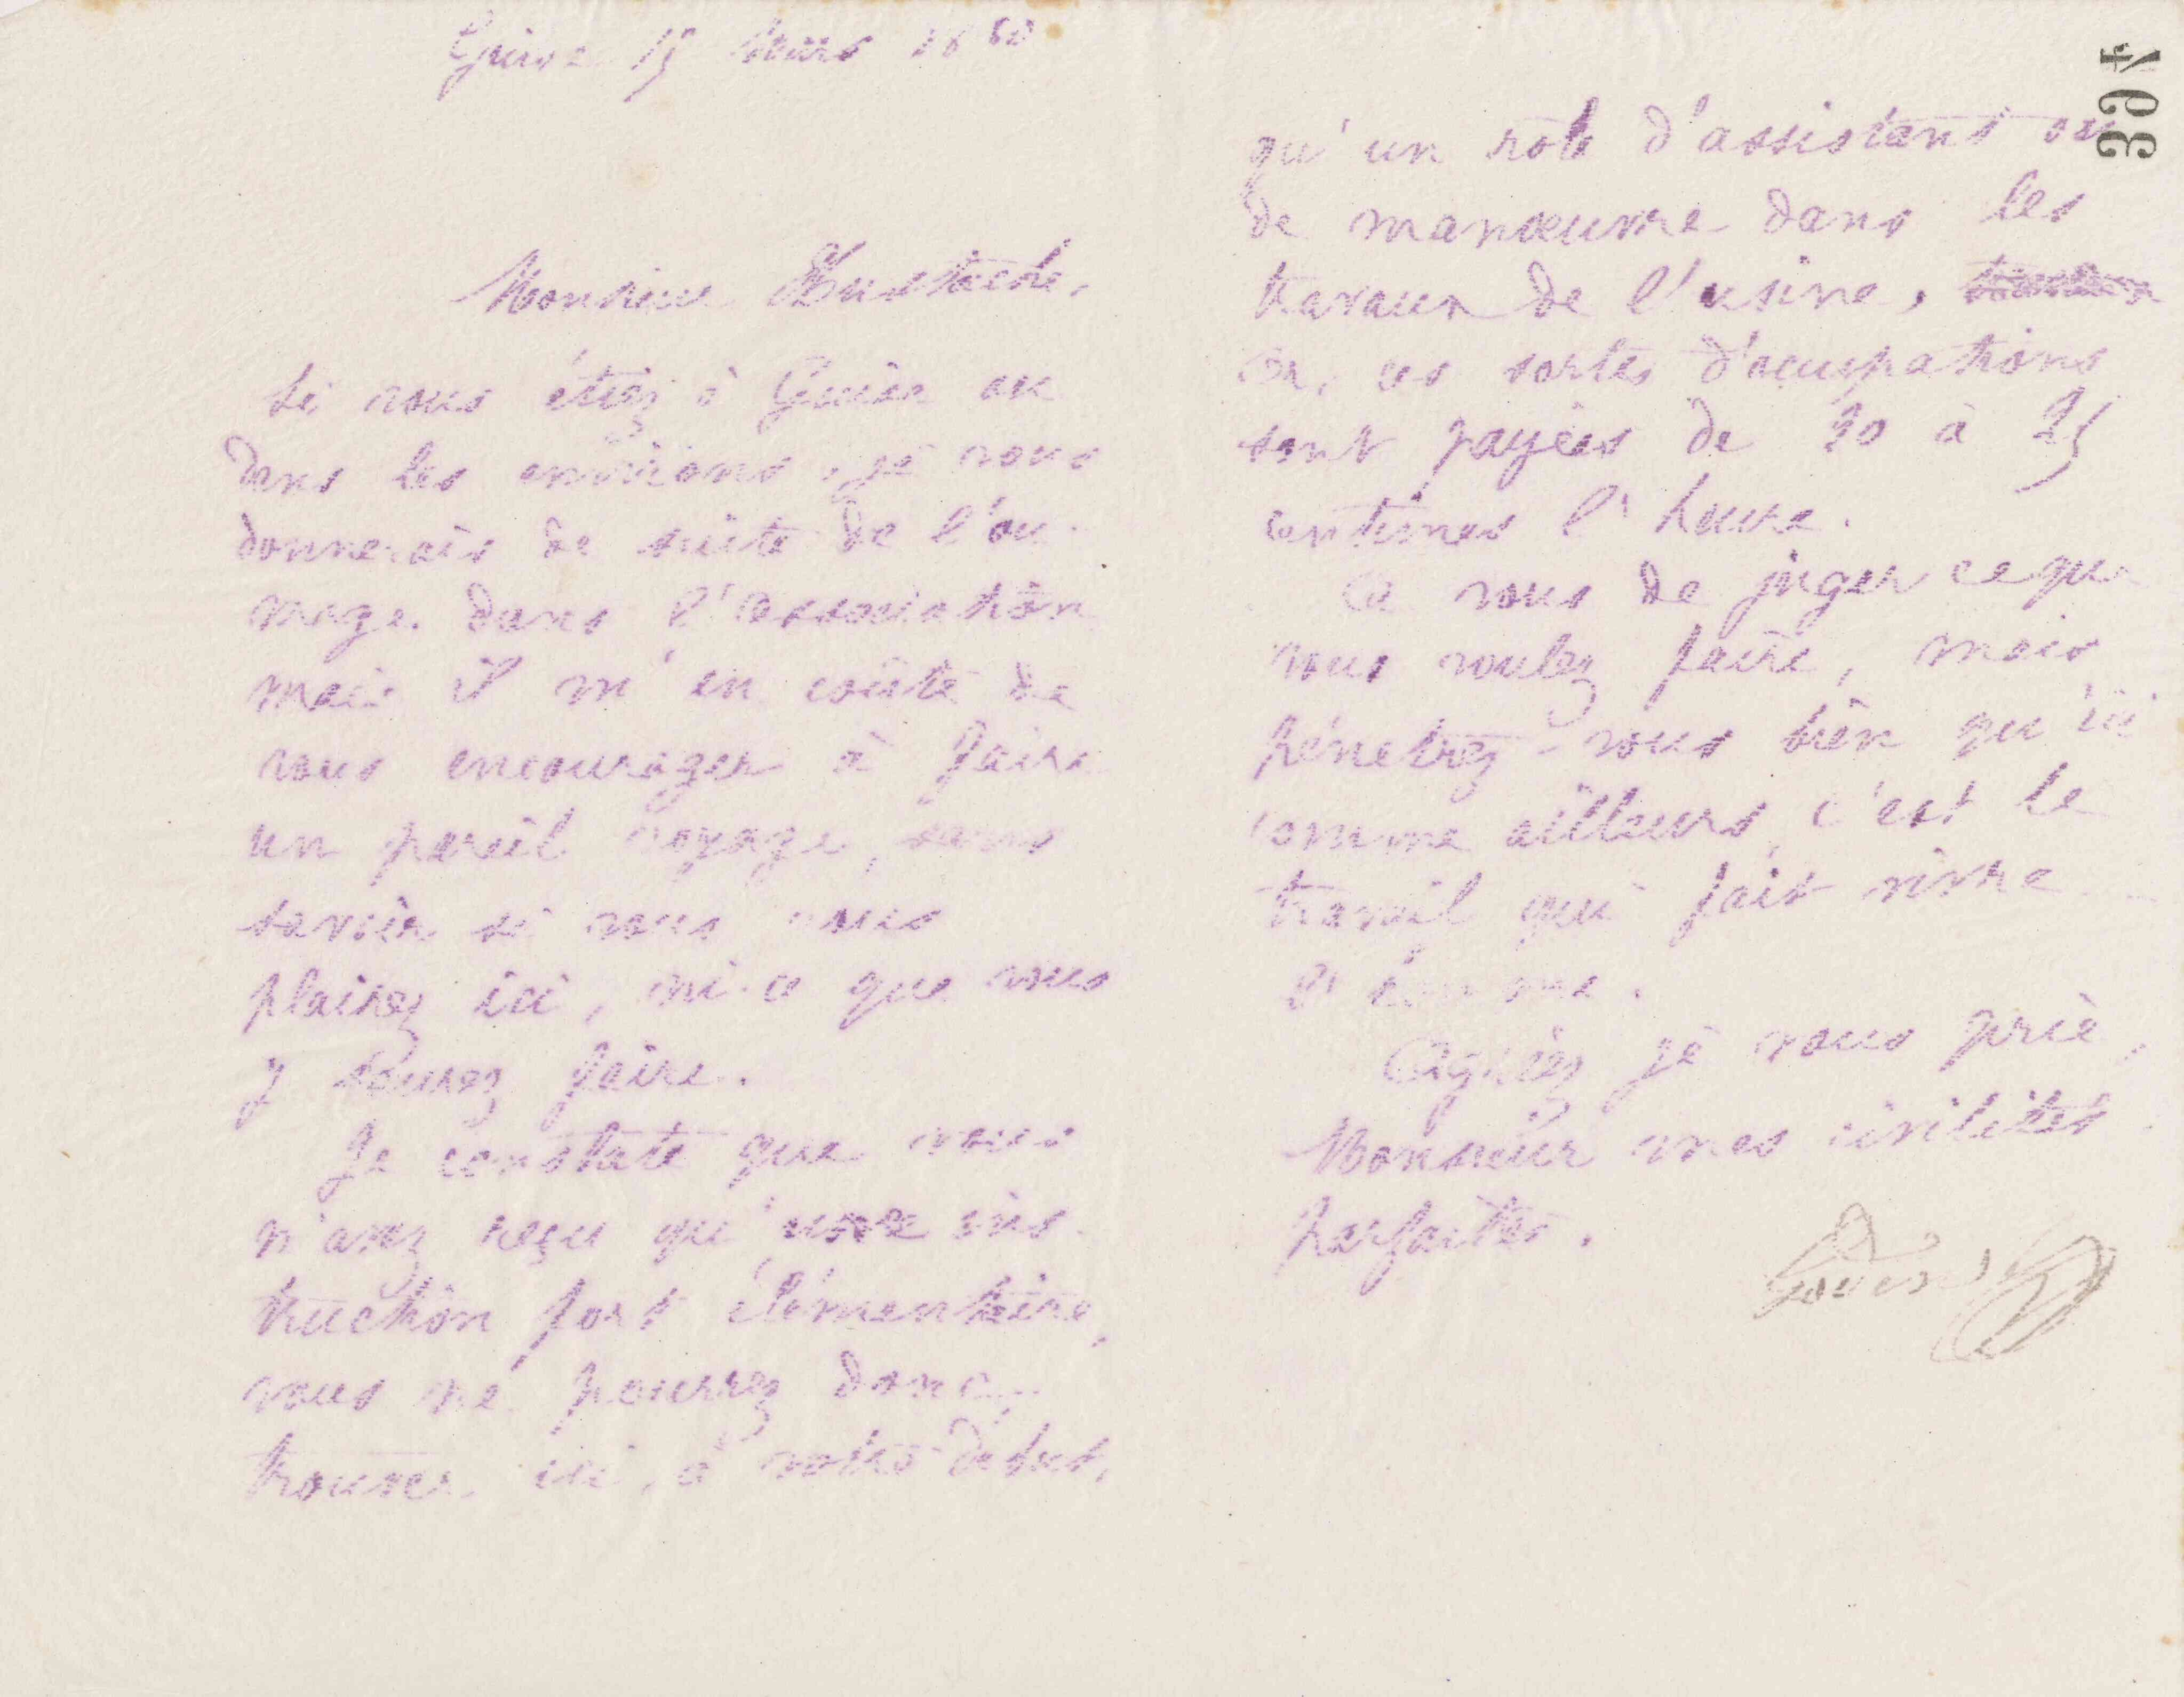 Guise 15 Mars 1880
Monsieur Eustache,
Si vous étiez à Guise ou
dans les environs, je vous
donnerais de suite de l'ou-
vrage dans l'association
mais il m'en coûte de
vous encourager à faire
un pareil voyage, sans
savoir si vous vous
plairez ici, ni ce que vous
y saurez faire.
Je constate que vous
n'avez reçu qu'une ins-
truction fort élémentaire,
vous ne pourrez donc
trouver ici, à votre début,
321
qu'un role d'assistant ou
de manœuvre dans les
travaux de l'usine,
or, ces sortes d'occupations
sont payées de 20 à 25
centimes l'heure.
A vous de juger ce que
vous voulez faire, mais
pénetrez-vous bien qu'ici
comme ailleurs, c'est le
travail qui fait vivre
l'homme.
Agréez je vous prie,
Monsieur mes civilités
parfaites.
Godin